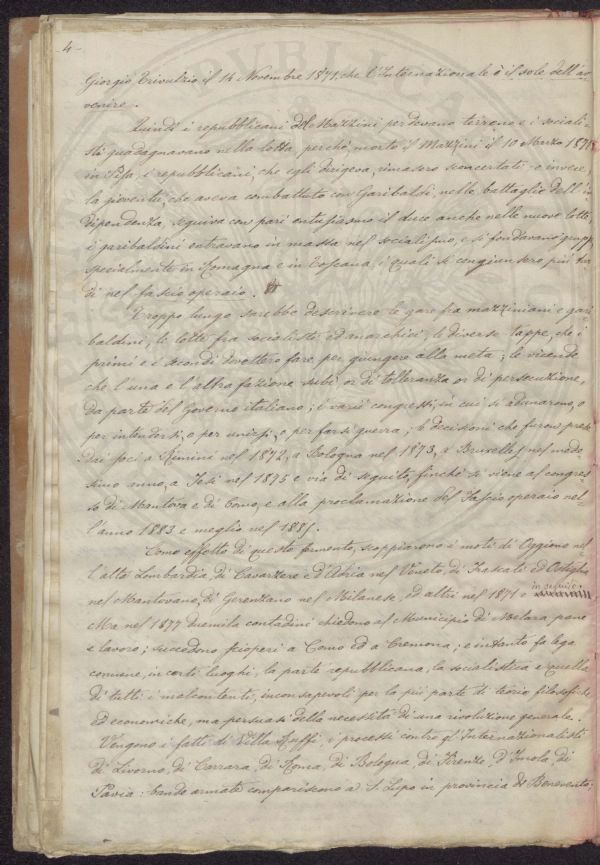 4
Giorgio Trivulzio il 14 Novembre 1871, che l'Internazionale è il sole dell'av
venire.
Quindi i repubblicani del Mazzini perdevano terreno e i sociali-
sti guadagnavano nella lotta, perchè morto il Mazzini il 10 Marzo 1872
in Pisa, i repubblicani, che egli dirigeva, rimasero sconcertati e invece,
la gioventù, che aveva combattuto con Garibaldi nelle battaglie dell'in
dipendenza, seguiva con pari entusiasmo il duce anche nelle nuove lotte,
e i garibaldini entravano in massa nel socialismo, e si fondavano gruppi,
specialmente in Romagna e in Toscana, i quali si congiunsero più tar
di nel fascio operaio.
Troppo lungo sarebbe descrivere le gare fra mazziniani e gari
baldini, le lotte fra socialisti ed anarchici, le diverse tappe, che i
primi e i secondi dovettero fare per giungere alla meta; le vicende
che l'una e l'altra fazione subì or di tolleranza or di persecuzione,
da parte del Governo italiano; i varii congressi, in cui si adunarono, o
per intendersi, o per unirsi, o per farsi guerra; le decisioni che furon prese
dai soci a Rimini nel 1872, a Bologna nel 1873, a Bruxelles nel mede
simo anno, a Jesi nel 1875 e via di seguito, finchè si viene al congres-
so di Mantova e di Como, e alla proclamazione del Fascio operaio nel-
l'anno 1883 e meglio nel 1885.
Come effetto di questo fermento, scoppiarono i moti di Oggiono nel
l'alta Lombardia, di Cavarzere e d'Adria nel Veneto, di Frascati ed Ostiglia
nel Mantovano, di Gerenzano nel Milanese, ed altri nel 1871 e in seguito.
Ma nel 1877 duemila contadini chiedono al Municipio di Melara, pane
e lavoro; succedono scioperi a Como ed a Cremona; e intanto fa lega
comune, in certi luoghi, la parte repubblicana, la socialistica e quella
di tutti i malcontenti, inconsapevoli per la più parte di teorie filosofiche
ed economiche, ma persuasi della necessità di una rivoluzione generale.
Vengono i fatti di Villa Ruffi, i processi contro gl'Internazionalisti
di Livorno, di Carrara, di Roma, di Bologna, di Firenze, d'Imola, di
Pavia: bande armate compariscono a S. Lupo in provincia di Benevento.